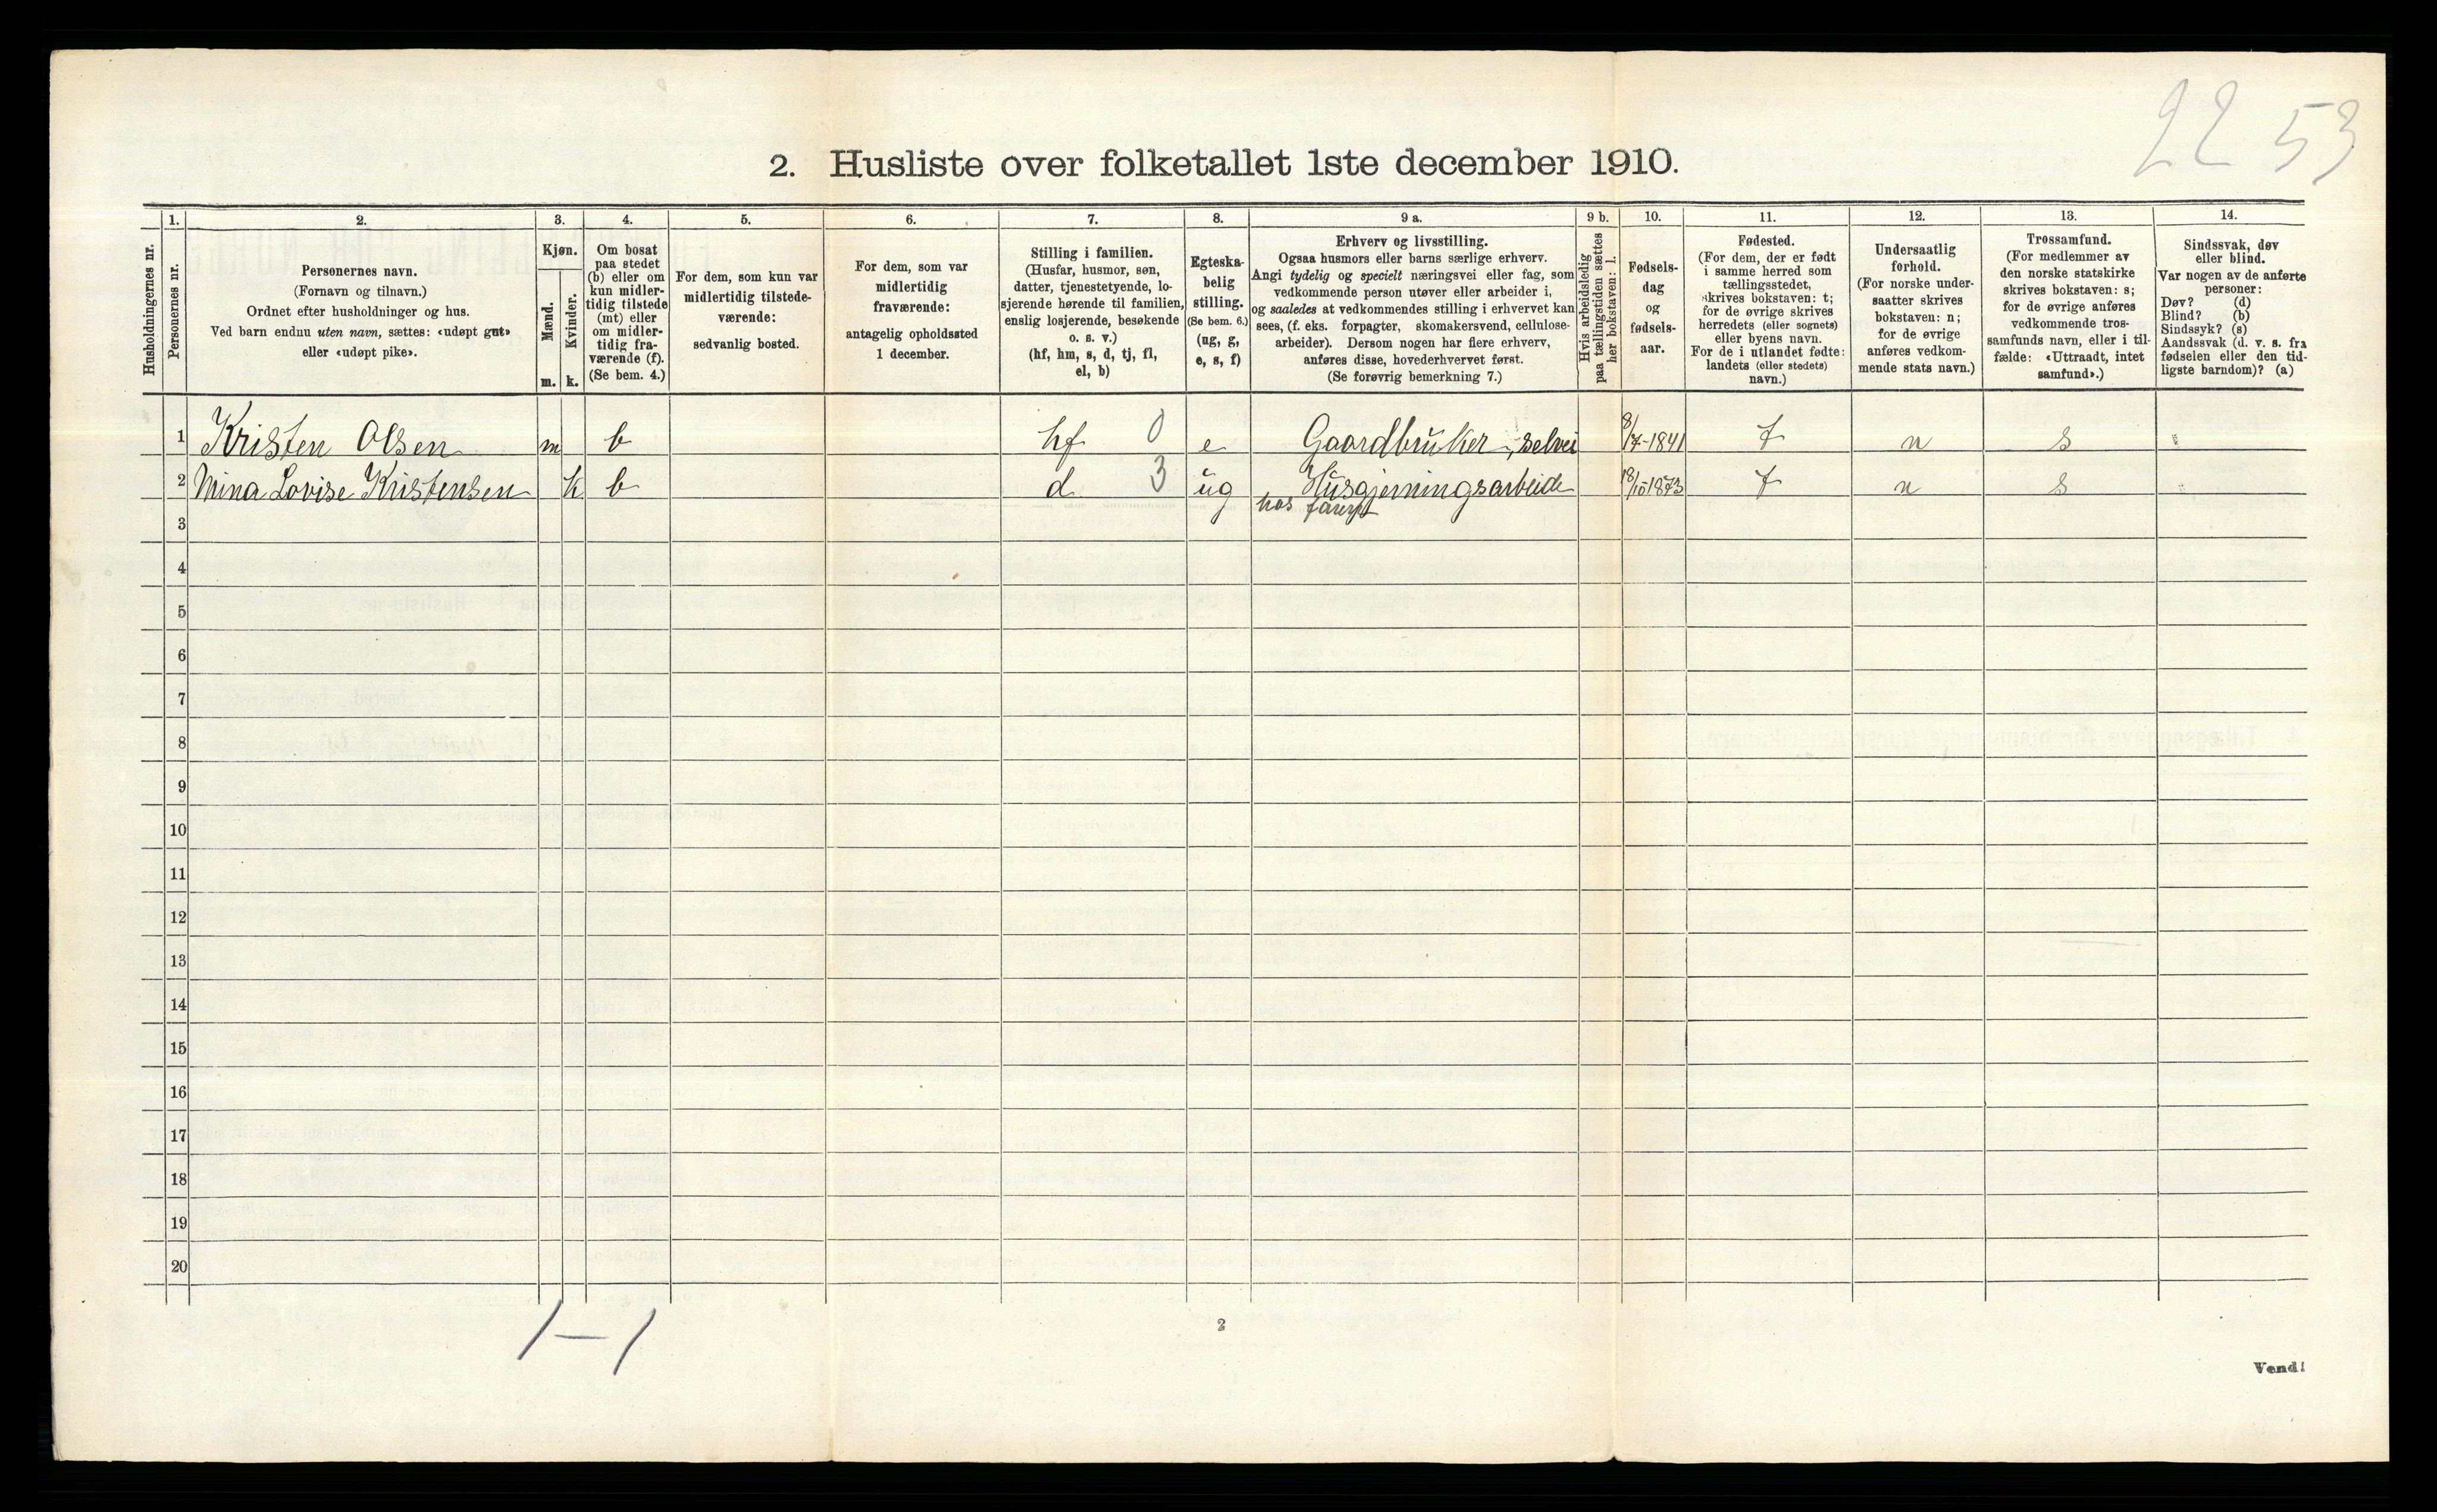 22 53
2. Husliste over folketallet 1ste december 1910.
Husholdningernes nr.
1.
Personernes nr.
2.
Personernes navn.
(Fornavn og tilnavn.)
Ordnet efter husholdninger og hus.
Ved barn endnu uten navn, sættes: «udøpt gut»
eller «udøpt pike».
3.
Kjøn.
Mænd.
Kvinder.
m. k.
4.
Om bosat
paa stedet
(b) eller om
kun midler-
tidig tilstede
(mt) eller
om midler-
tidig fra-
værende (f).
(Se bem. 4.)
5.
For dem, som kun var
midlertidig tilstede-
værende:
sedvanlig bosted.
6.
For dem, som var
midlertidig
fraværende:
antagelig opholdssted
1 december.
7.
Stilling i familien.
(Husfar, husmor, søn,
datter, tjenestetyende, lo-
sjerende hørende til familien,
enslig losjerende, besøkende
o. s. v.)
(hf, hm, s, d, tj, fl,
el, b)
8.
Egteska-
belig
stilling.
(Se bem. 6.)
(ug, g,
e, s, f)
9 a.
Erhverv og livsstilling.
Ogsaa husmors eller barns særlige erhverv.
Angi tydelig og specielt næringsvei eller fag, som
vedkommende person utøver eller arbeider i,
og saaledes at vedkommendes stilling i erhvervet kan
sees, (f. eks. forpagter, skomakersvend, cellulose-
arbeider). Dersom nogen har flere erhverv,
anføres disse, hovederhvervet først.
(Se forøvrig bemerkning 7.)
9 b.
Hvis arbeidsledig
paa tællingstiden sættes
her bokstaven: l.
10.
Fødsels-
dag
og
fødsels-
aar.
11.
Fødested.
(For dem, der er født
i samme herred som
tællingsstedet,
skrives bokstaven: t;
for de øvrige skrives
herredets (eller sognets)
eller byens navn.
For de i utlandet fødte:
landets (eller stedets)
navn.)
12.
Undersaatlig
forhold.
(For norske under-
saatter skrives
bokstaven: n;
for de øvrige
anføres vedkom-
mende stats navn.)
13.
Trossamfund.
(For medlemmer av
den norske statskirke
skrives bokstaven: s;
for de øvrige anføres
vedkommende tros-
samfunds navn, eller i til-
fælde: «Uttraadt, intet
samfund».)
14.
Sindssvak, døv
eller blind.
Var nogen av de anførte
personer:
Døv? (d)
Blind? (b)
Sindssyk? (s)
Aandssvak (d. v. s. fra
fødselen eller den tid-
ligste barndom)? (a)
1 Kristen Olsen m b hf 0 e Gaardbruker, selvei 8/7-1841 t n s
2 Mina Lovise Kristensen k b d 3 ug Husgjerningsarbeide 18/10 1873 t n s
hos
3
4
5
6
7
8
9
10
11
12
13
14
15
16
17
18
19
20
1 – 1
2
Vend!